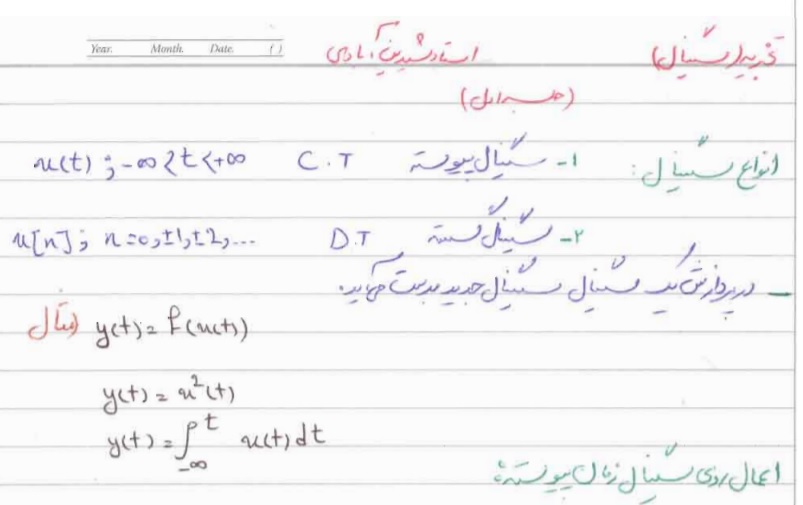 Year. Month. Date. ( )
تجزیه (سیگنال) استاد
(جلسه اول)
انواع سیگنال: ۱- سیگنال پیوسته C.T x(t) ; -∞ < t < +∞
۲- سیگنال گسسته D.T x[n]; n=0,±1,±2,...
— در پردازش یک سیگنال سیگنال جدید بدست می‌آید.
مثال) y(t) = f(x(t))
y(t) = x²(t)
y(t) = ∫_{-∞}^{t} x(t) dt
اعمال روی سیگنال زمان پیوسته: